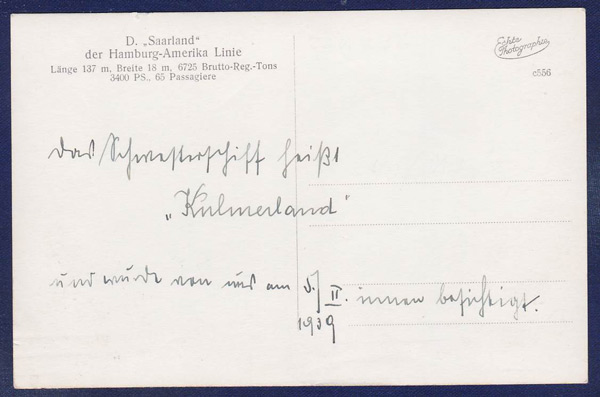 D. „Saarland“
der Hamburg-Amerika Linie
Länge 137 m, Breite 18 m, 6725 Brutto-Reg.-Tons
3400 PS., 65 Passagiere
Echte
Photographie
c556
Das Schwesterschiff heißt
„Kulmerland“
und wurde von uns am 5./II. innen besichtigt.
1939